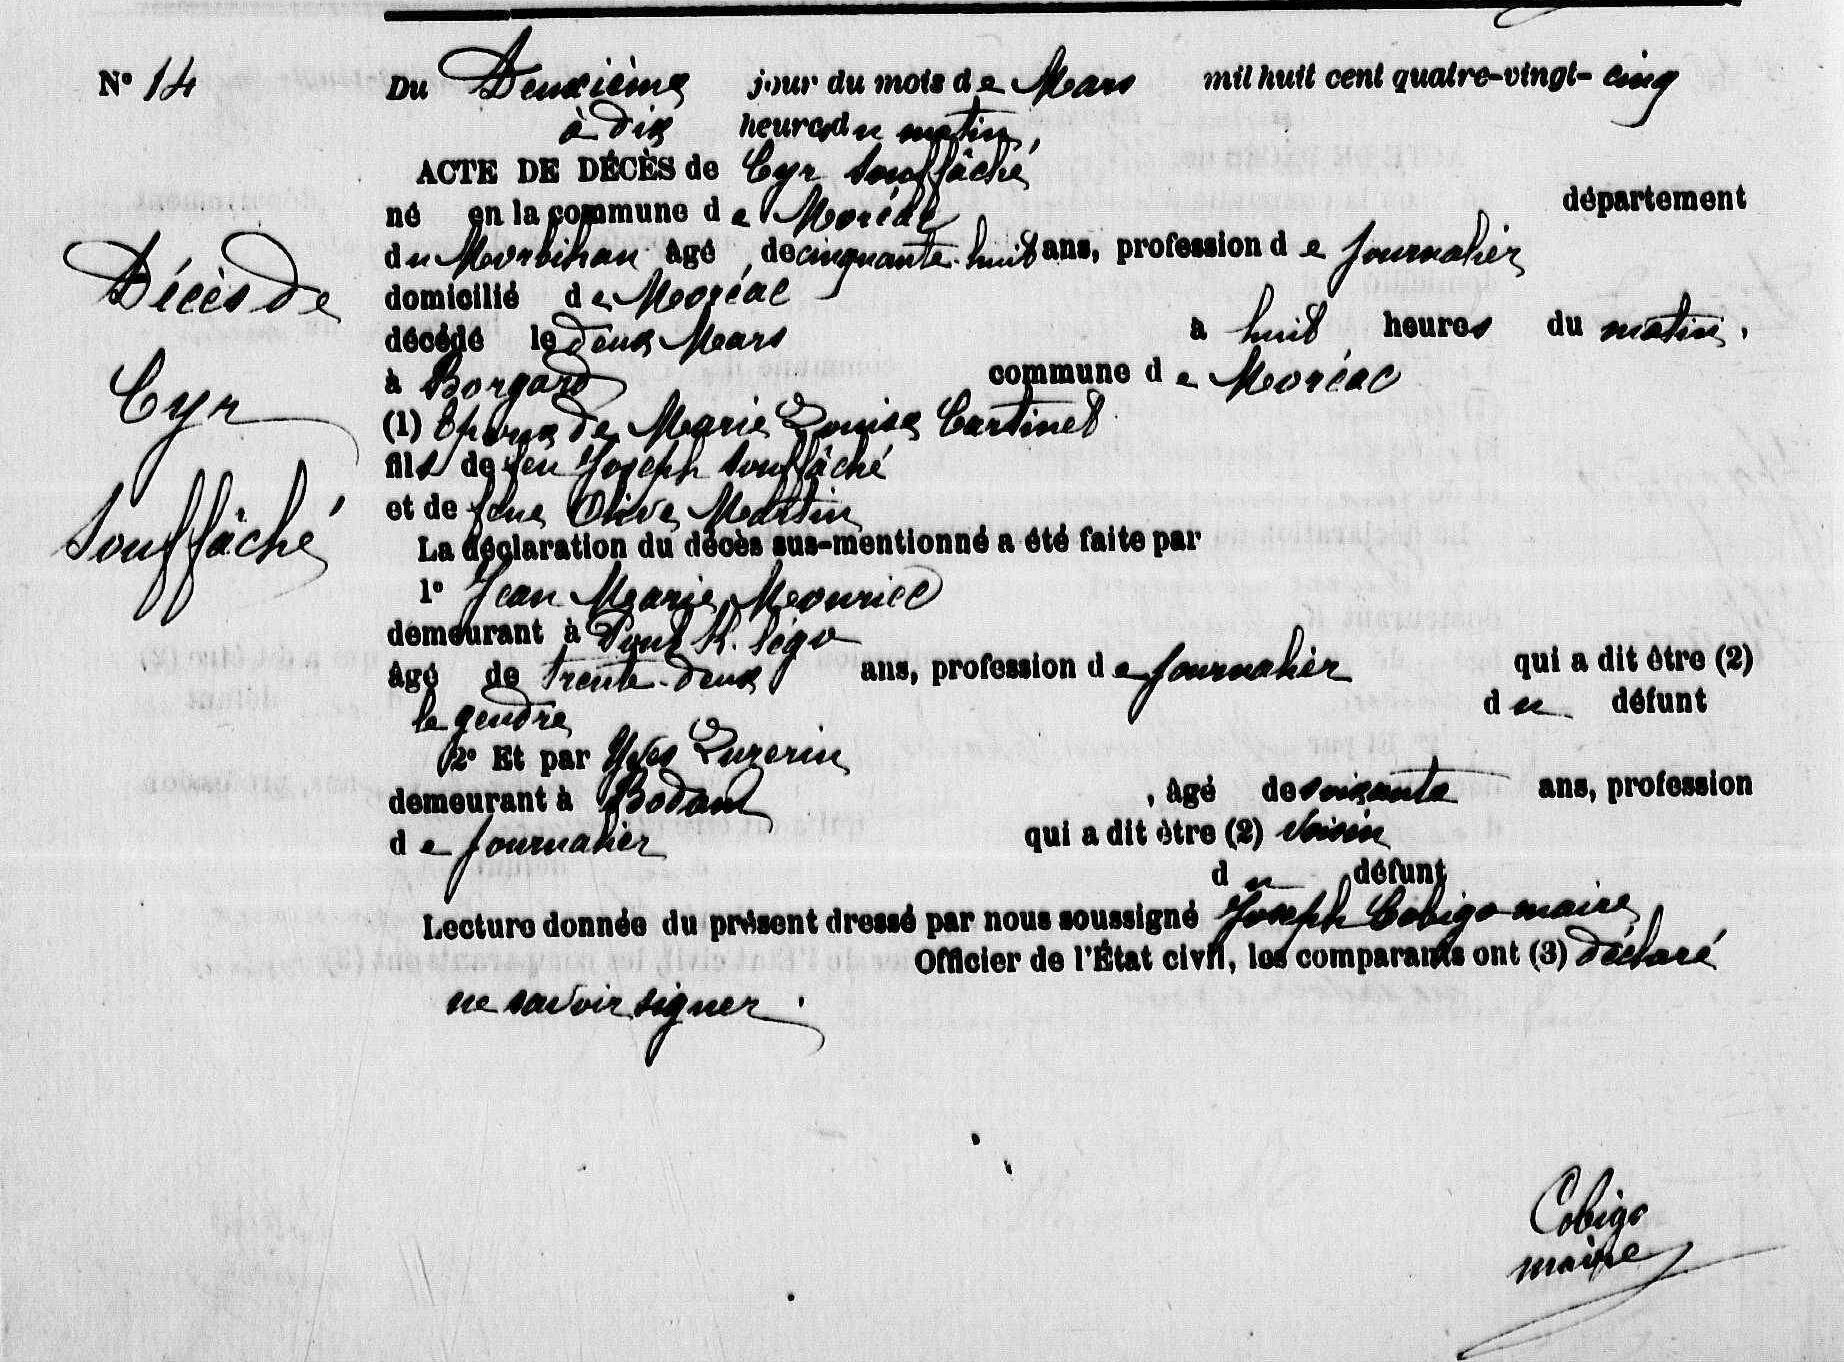 N° 14
Du Deuxième jour du mois de Mars mil huit cent quatre-vingt-cinq
à dix heures du matin,
ACTE DE DÉCÈS de Cyr Souffâché
né en la commune de Moréac département
du Morbihan âgé de cinquante-huit ans, profession de journalier
domicilié de Moréac
décédé le deux Mars à huit heures du matin,
à Borgard commune de Moréac
(1) Epoux de Marie Louise Cartinet
fils de feu Joseph Souffâché
et de feue Olive Martin
La déclaration du décès sus-mentionné a été faite par
1° Jean Marie
demeurant à Pont
âgé de trente-deux ans, profession de journalier qui a dit être (2)
le gendre du défunt
2° Et par Yves Luzerin
demeurant à , âgé de soixante ans, profession
de journalier qui a dit être (2) voisin
du défunt
Lecture donnée du présent dressé par nous soussigné Joseph Cobigo maire
Officier de l'État civil, les comparants ont (3) déclaré
ne savoir signer.
Décès de
Cyr
Souffâché
Cobigo
maire